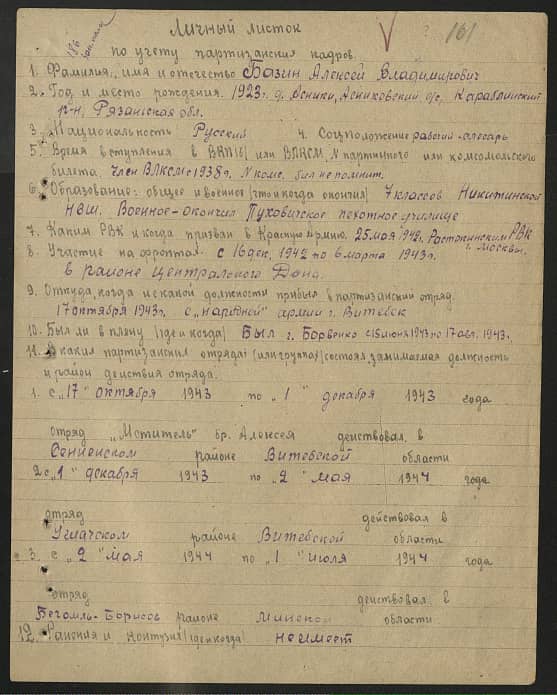 Личный листок
161
по учету партизанских кадров.
1. Фамилия, имя и отчество Базин Алексей Владимирович
2. Год и место рождения. 1923г. д. Асники, Асниковский с/с, Кораблинский
р-н, Рязанская обл.
3. Национальность Русский 4. Соцположение рабочий-слесарь
5. Время вступления в ВКП(б) или ВЛКСМ, N партийного или комсомольского
билета. Член ВЛКСМ с 1938г. N комс. бил не помнит.
6. Образование: общее и военное (что и когда окончил) 7 классов Никитинской
НСШ. Военное-окончил Пуховичское пехотное училище
7. Каким РВК и когда призван в Красную Армию. 25 мая 1942г. Ростокинским РВК
г. Москвы.
8. Участие на фронтах. с 16 дек. 1942 по 6 марта 1943г.
в районе Центрального Дона.
9. Откуда, когда и с какой должности прибыл в партизанский отряд.
17 октября 1943г. с „народной" армии г. Витебск
10. Был ли в плену (где и когда) Был г. Боровенко с 15 июня 1943 по 17 авг. 1943г.
11. В каких партизанских отрядах (или группах) состоял, занимаемая должность
и район действия отряда.
1. с „17" октября 1943 по „1" декабря 1943 года
отряд „Мститель" бр. Алексея действовал в
Сенненском районе Витебской области
2. с „1" декабря 1943 по „2" мая 1944 года
отряд действовал в
Ушачском районе Витебской области
3. с „2" мая 1944 по „1" июля 1944 года
отряд действовал в
Бегомль-Борисов районе Минской области.
12. Ранения и контузии (где и когда) не имеет